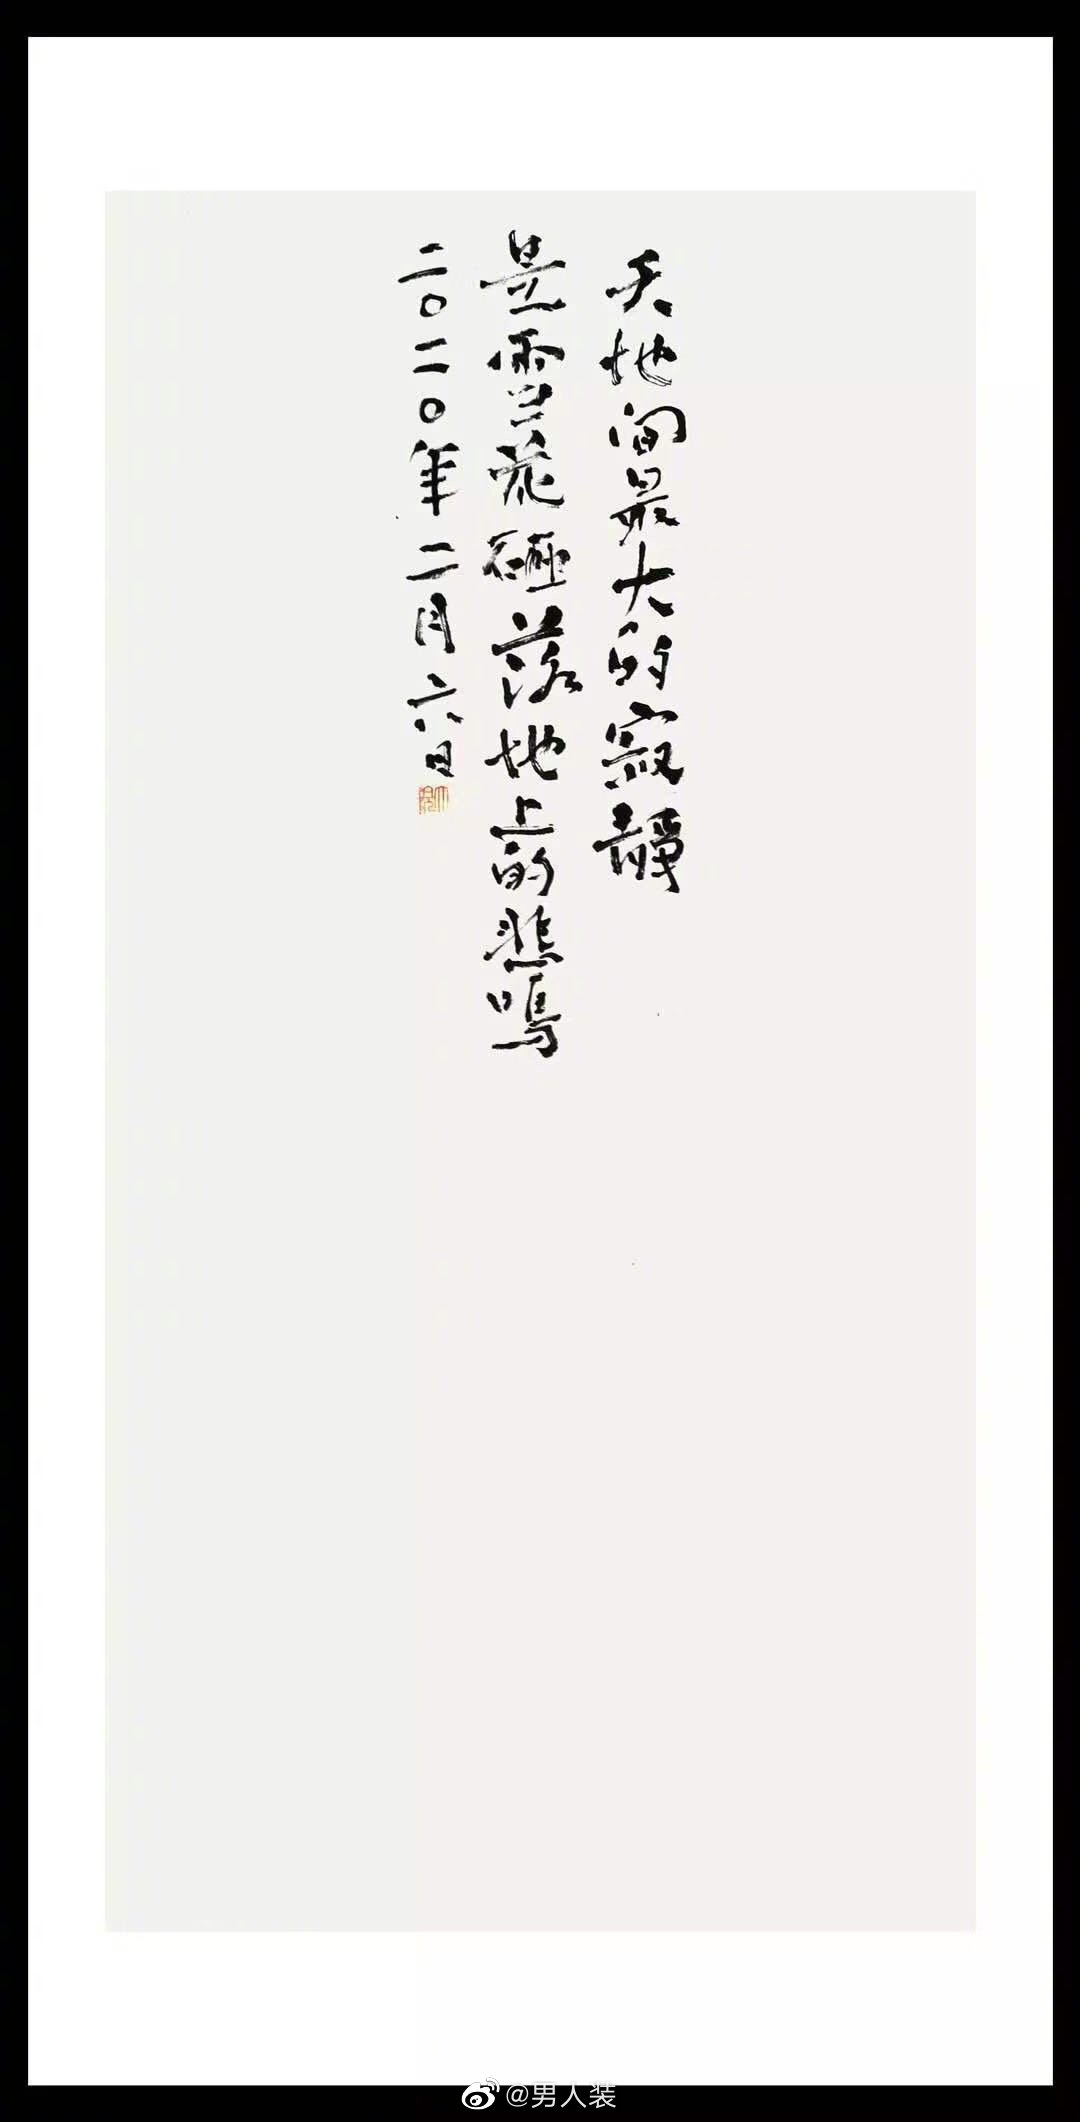 天地间最大的寂靜
是雪花砸落地上的悲鳴
二〇二〇年二月六日
@男人装